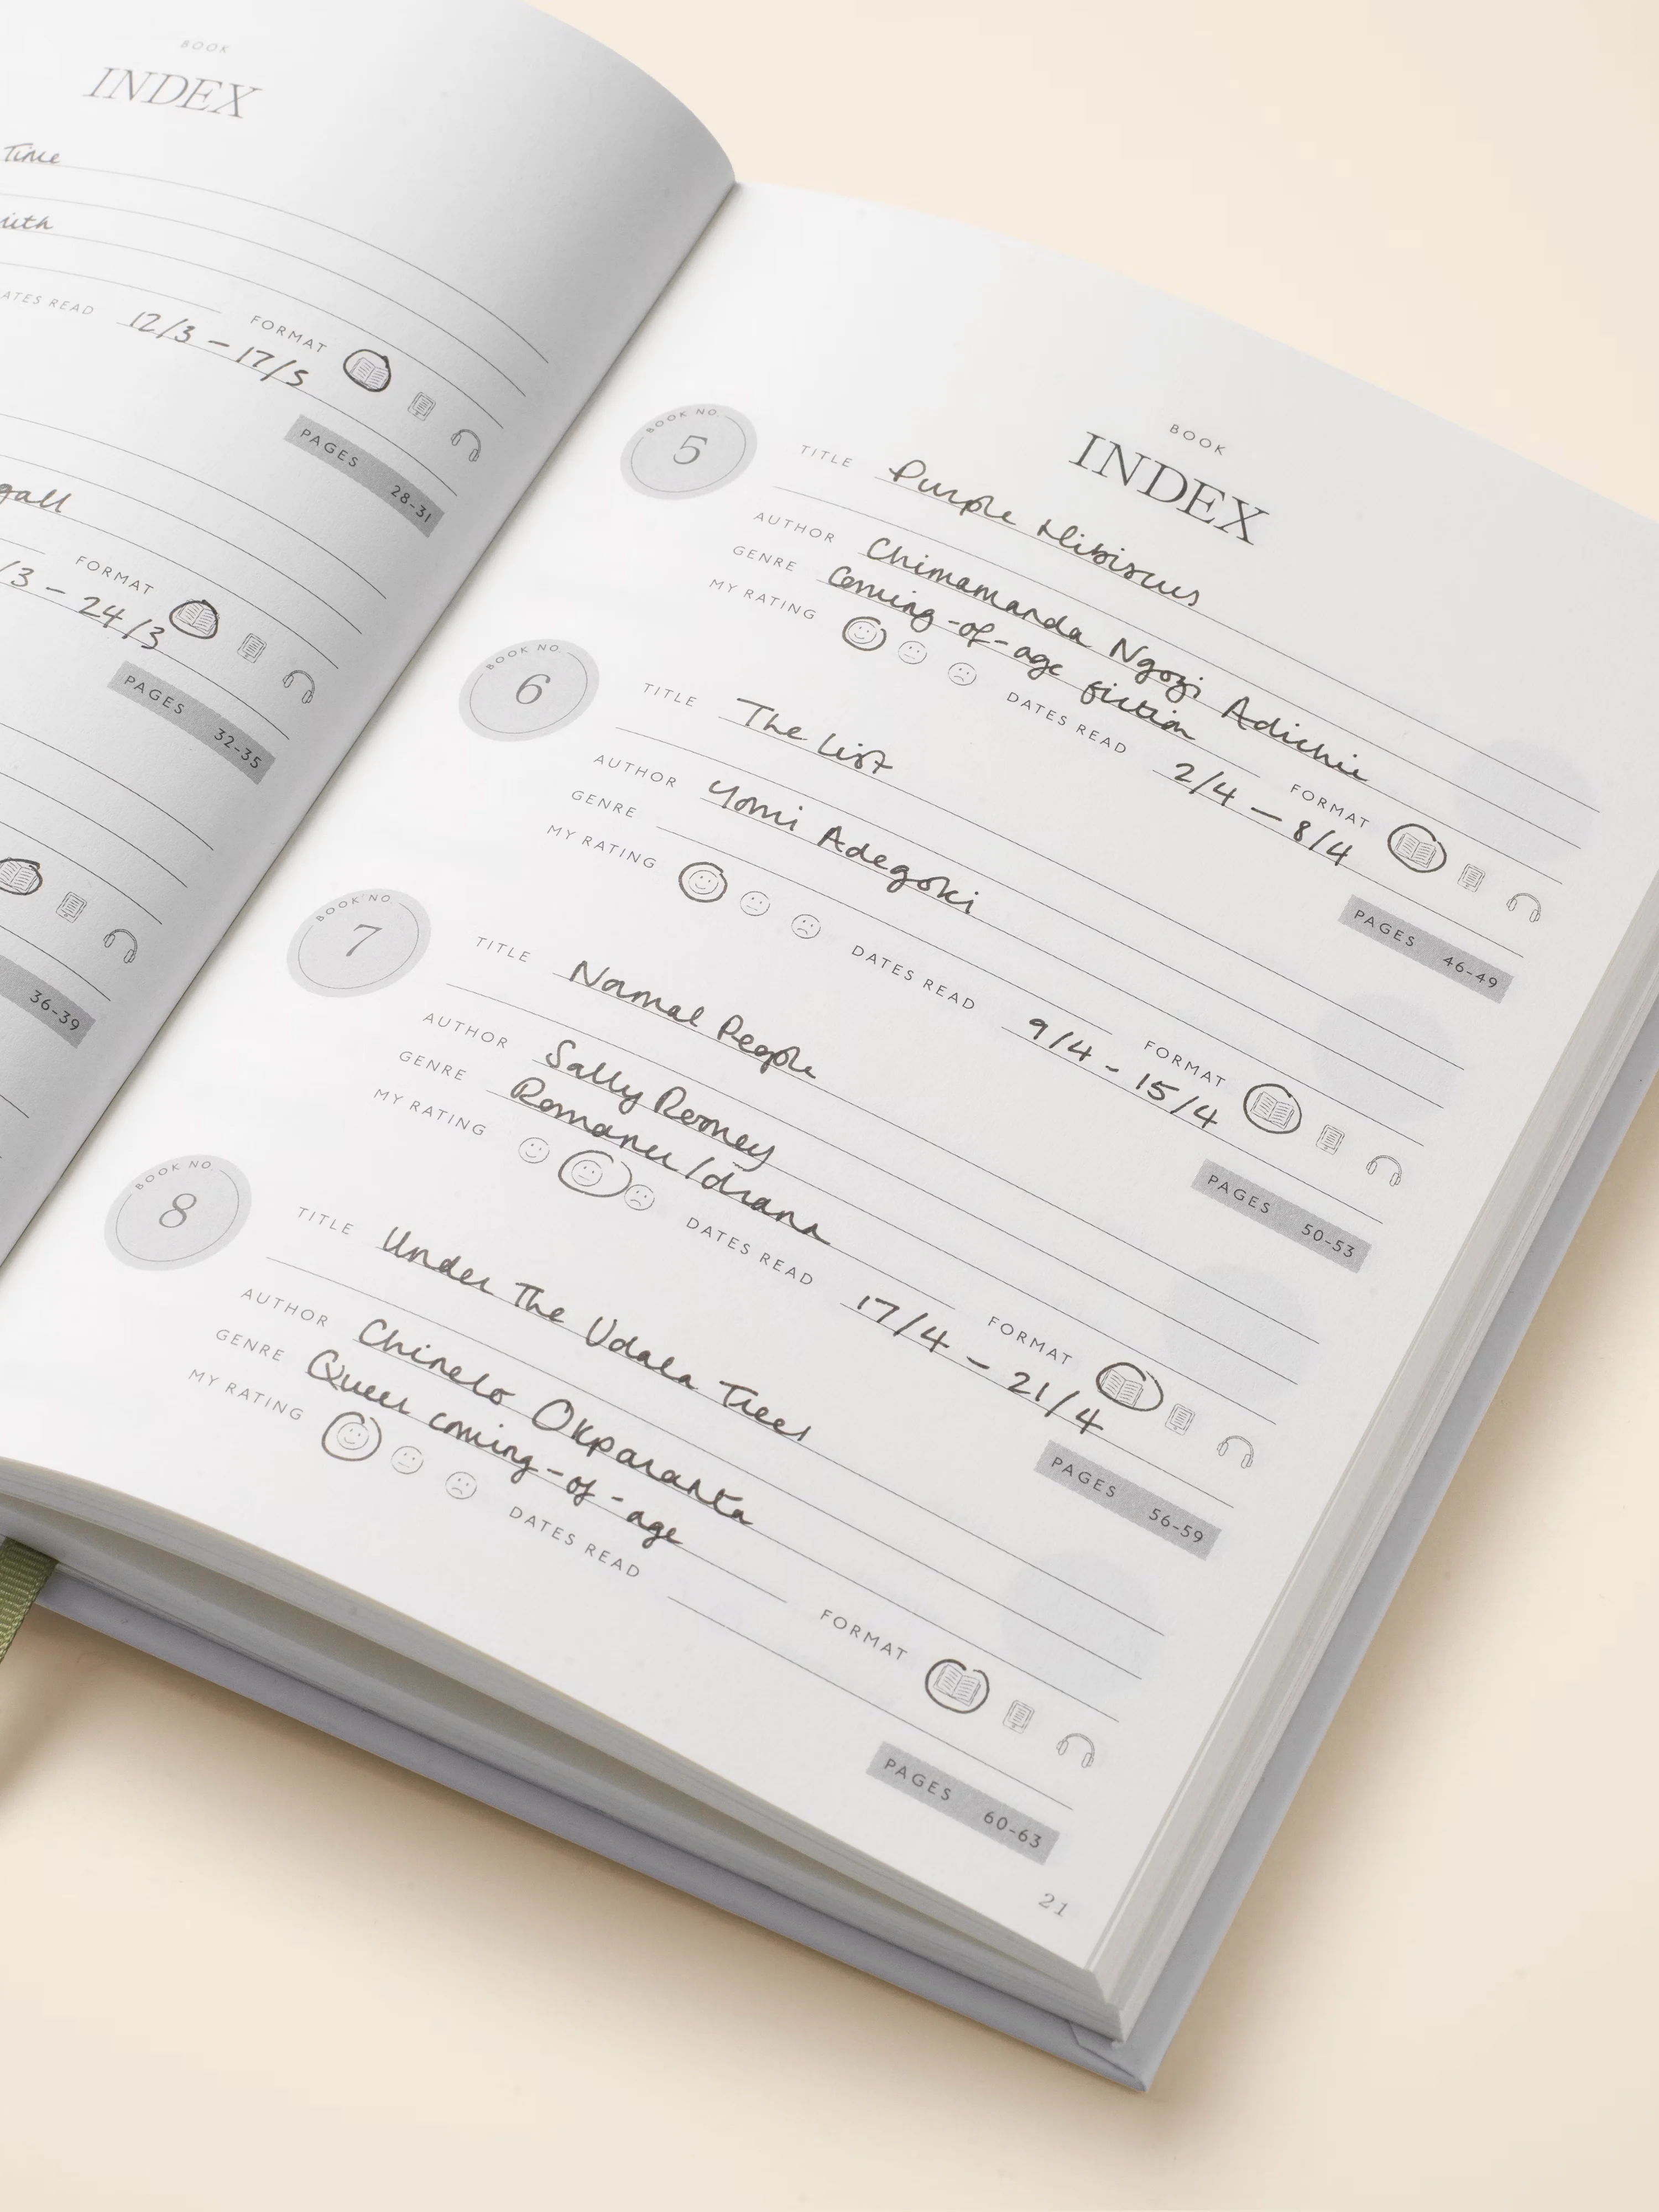 BOOK
INDEX
Time
DATES READ 12/3 - 17/5 FORMAT
PAGES 28-31
gall
/3 - 24/3 FORMAT
PAGES 32-35
36-39
BOOK
INDEX
BOOK NO. 5
TITLE Purple Hibiscus
AUTHOR Chimamanda Ngozi Adichie
GENRE Coming-of-age fiction
MY RATING DATES READ 2/4 - 8/4 FORMAT
PAGES 46-49
BOOK NO. 6
TITLE The List
AUTHOR Yomi Adegoki
GENRE
MY RATING DATES READ 9/4 - 15/4 FORMAT
PAGES 50-53
BOOK NO. 7
TITLE Normal People
AUTHOR Sally Rooney
GENRE Romance/drama
MY RATING DATES READ 17/4 - 21/4 FORMAT
PAGES 56-59
BOOK NO. 8
TITLE Under The Udala Trees
AUTHOR Chinelo Okparanta
GENRE Queer coming-of-age
MY RATING DATES READ FORMAT
PAGES 60-63
21